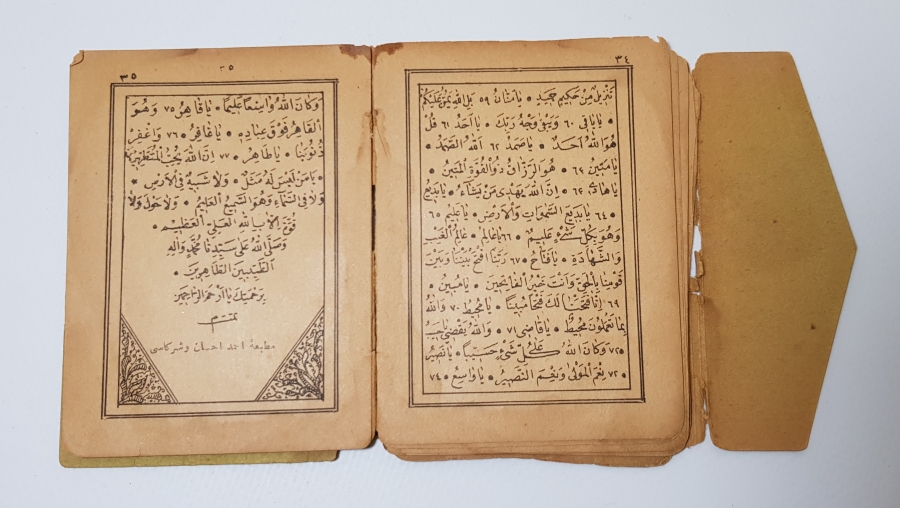 ٣٤
تَنْزِيلٌ مِنْ حَكِيمٍ حَمِيدٍ ۰ يَامَنَّانُ ٥٩ بَلِ اللّٰهُ يَمُنُّ عَلَيْكُمْ
۰ يَابَاقِى ٦٠ وَيَبْقٰى وَجْهُ رَبِّكَ ۰ يَااَحَدُ ٦١ قُلْ
هُوَ اللّٰهُ اَحَدٌ ۰ يَاصَمَدُ ٦٢ اَللّٰهُ الصَّمَدُ ۰
يَامَتِينُ ٦٣ ۰ هُوَ الرَّزَّاقُ ذُو الْقُوَّةِ الْمَتِينُ ۰
يَاهَادِى ٦٣ ۰ اِنَّ اللّٰهَ يَهْدِى مَنْ يَشَاءُ ۰ يَابَدِيعُ
٦٤ ۰ يَابَدِيعَ السَّمٰوَاتِ وَالْاَرْضِ ۰ يَاعَلِيمُ ٦٥
وَهُوَ بِكُلِّ شَىْءٍ عَلِيمٌ ۰ ٦٦ يَاعَالِمُ ۰ عَالِمُ الْغَيْبِ
وَالشَّهَادَةِ ۰ يَافَتَّاحُ ٦٧ ۰ رَبَّنَا افْتَحْ بَيْنَنَا وَبَيْنَ
قَوْمِنَا بِالْحَقِّ وَاَنْتَ خَيْرُ الْفَاتِحِينَ ۰ يَامُبِينُ ۰
٦٩ اِنَّا فَتَحْنَا لَكَ فَتْحًا مُبِينًا ۰ يَامُحِيطُ ٧٠ وَاللّٰهُ
بِمَا تَعْمَلُونَ مُحِيطٌ ۰ يَاقَاضِى ٧١ ۰ وَاللّٰهُ يَقْضِى
٧٢٥ وَكَانَ اللّٰهُ عَلٰى كُلِّ شَىْءٍ حَسِيبًا ۰ يَانَصِيرُ
۰ ٧٣ نِعْمَ الْمَوْلٰى وَنِعْمَ النَّصِيرُ ۰ يَاوَاسِعُ ۰ ٧٤
٣٥
٣٥
وَكَانَ اللّٰهُ وَاسِعًا عَلِيمًا ۰ يَاقَاهِرُ ٧٥ وَهُوَ
الْقَاهِرُ فَوْقَ عِبَادِهِ ۰ يَاغَافِرُ ۰ ٧٦ وَاغْفِرْ
ذُنُوبَنَا ۰ يَاطَاهِرُ ۰ ٧٧ اِنَّ اللّٰهَ يُحِبُّ الْمُتَطَهِّرِينَ
۰ يَامَنْ لَيْسَ لَهُ مَثَلٌ ۰ وَلَا شَبِيهٌ فِى الْاَرْضِ ۰
وَلَا فِى السَّمَاءِ وَهُوَ السَّمِيعُ الْعَلِيمُ ۰ وَلَا حَوْلَ وَلَا
قُوَّةَ اِلَّا بِاللّٰهِ الْعَلِىِّ الْعَظِيمِ ۰
وَصَلَّى اللّٰهُ عَلٰى سَيِّدِنَا مُحَمَّدٍ وَاٰلِهِ
الطَّيِّبِينَ الطَّاهِرِينَ ۰
بِرَحْمَتِكَ يَا اَرْحَمَ الرَّاحِمِينَ
مطبعۀ احمد احسان وشركاسى